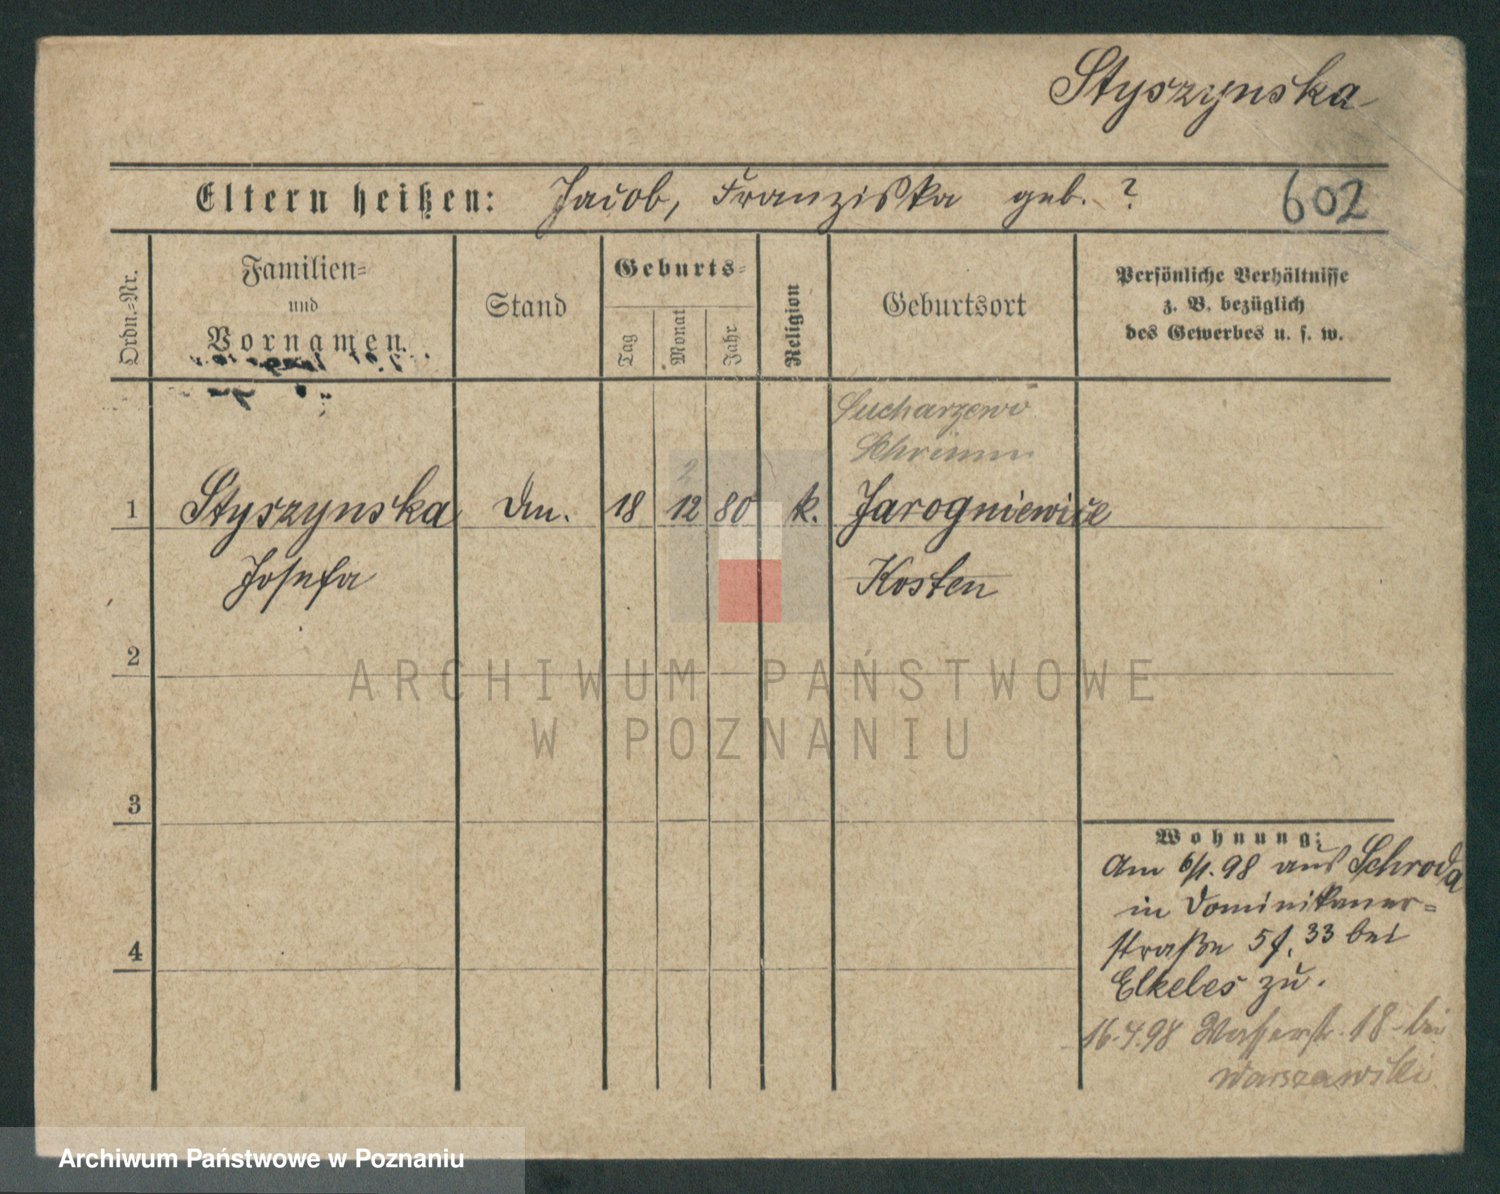 Styszynska
Eltern heißen: Jacob, Franziska geb. ?
602
Ordn.-Nr.
Familien-
und
Vornamen.
Stand
Geburts-
Tag
Monat
Jahr
Religion
Geburtsort
Persönliche Verhältnisse
z. B. bezüglich
des Gewerbes u. s. w.
Sucharzewo
Schrimm
2
1 Styszynska Dm. 18 12 80 k. Jarogniewice
Josefa Kosten
2
3
4
Wohnung:
Am 6/1. 98 aus Schroda
in Dominikaner-
straße 5 33 bei
Elkeles zu.
16.4.98 Wasserstr. 18 bei
Warszawski
ARCHIWUM PAŃSTWOWE
W POZNANIU
Archiwum Państwowe w Poznaniu